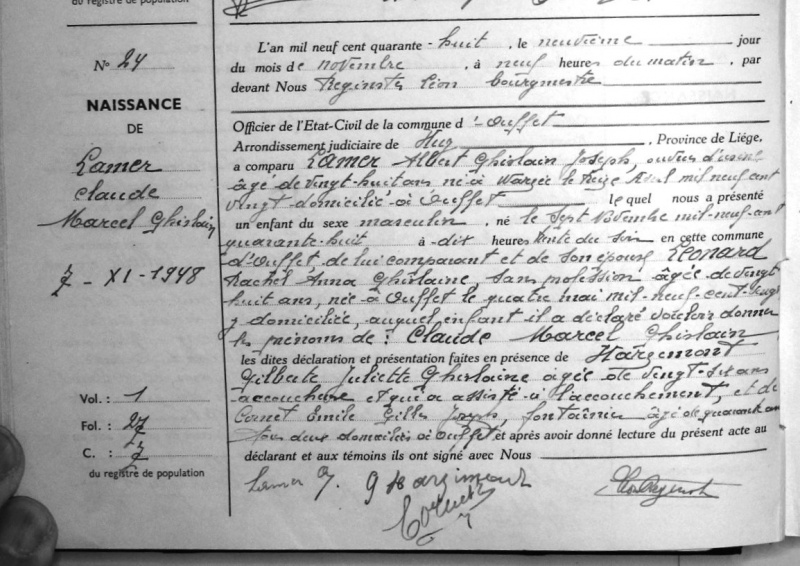 du registre de population
Nº 24
NAISSANCE
DE
Lamer
Claude
Marcel Ghislain
7 - XI - 1948
Vol. : 1
Fol. : 27
C. : 7
du registre de population
L'an mil neuf cent quarante-huit, le neuvième jour
du mois de novembre, à neuf heures du matin, par
devant Nous Léon bourgmestre
Officier de l'Etat-Civil de la commune d'Ouffet
Arrondissement judiciaire de Huy, Province de Liége,
a comparu Lamer Albert Ghislain Joseph, ouvrier d'usine
âgé de vingt-huit ans né à le treize Avril mil neuf cent
vingt domicilié à Ouffet lequel nous a présenté
un enfant du sexe masculin, né le sept Novembre mil-neuf-cent
quarante-huit à dix heures trente du soir en cette commune
d'Ouffet de lui comparant et de son épouse Léonard
Rachel Anna Ghislaine, sans profession âgée de vingt
huit ans, née à Ouffet le quatre mai mil-neuf-cent-vingt
y domiciliée, auquel enfant il a déclaré vouloir donner
les prénoms de : Claude Marcel Ghislain
les dites déclaration et présentation faites en présence de Hargimont
Gilberte Juliette Ghislaine âgée de vingt-six ans
accoucheuse et qui a assisté à l'accouchement, et de
Emile Gilles Joseph, fontainier âgé de quarante ans
tous deux domiciliés à Ouffet et après avoir donné lecture du présent acte au
déclarant et aux témoins ils ont signé avec Nous
Lamer A. G Hargimont